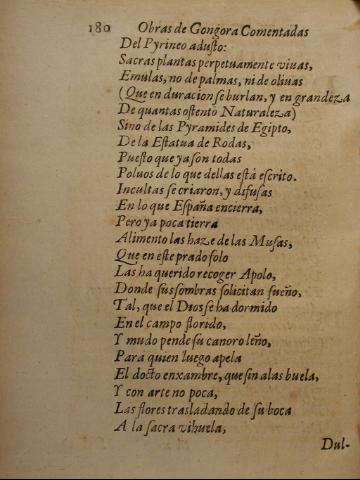 180 Obras de Gongora Comentadas
Del Pyrineo adusto:
Sacras plantas perpetuamente viuas,
Emulas, no de palmas, ni de oliuas
(Que en duracion se burlan, y en grandeza
De quantas ostentò Naturaleza)
Sino de las Pyramides de Egipto,
De la Estatua de Rodas,
Puesto que ya son todas
Poluos de lo que dellas està escrito.
Incultas se criaron, y difusas
En lo que España encierra,
Pero ya poca tierra
Alimento las haze de las Musas,
Que en este prado solo
Las ha querido recoger Apolo,
Donde sus sombras solicitan sueño,
Tal, que el Dios se ha dormido
En el campo florido,
Y mudo pende su canoro leño,
Para quien luego apela
El docto enxambre, que sin alas buela,
Y con arte no poca,
Las flores trasladando de su boca
A la sacra vihuela,
Dul-